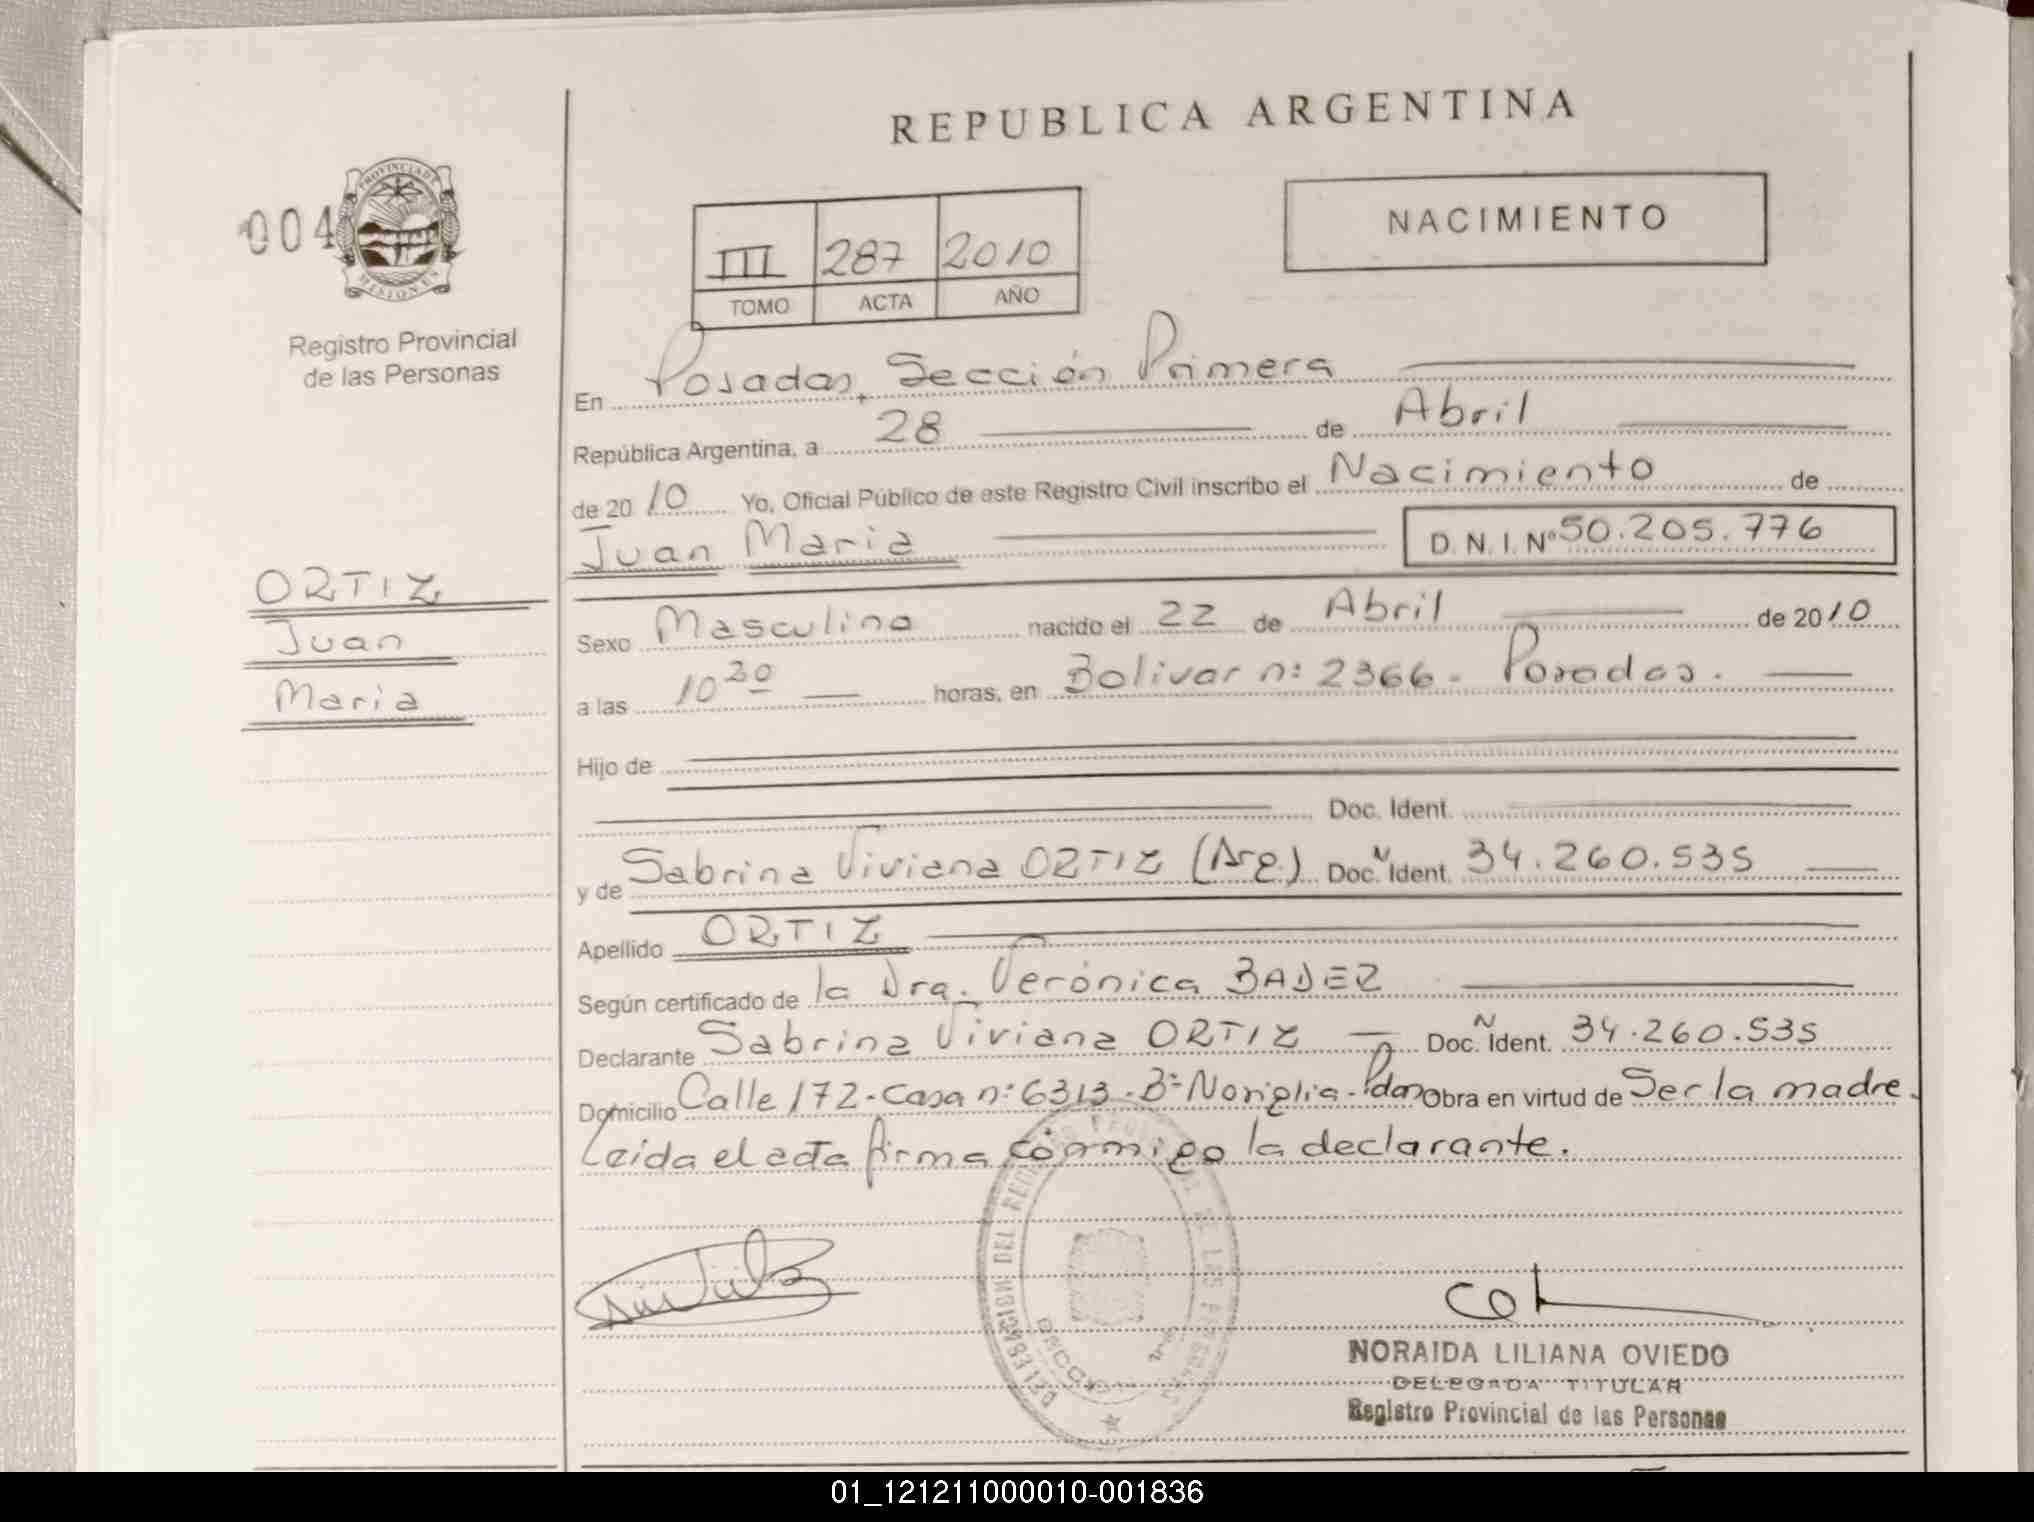 REPUBLICA ARGENTINA
004
PROVINCIA DE
MISIONES
Registro Provincial
de las Personas
III 287 2010
TOMO ACTA AÑO
NACIMIENTO
En Posadas, Sección Primera
República Argentina, a 28 de Abril
de 2010 Yo, Oficial Público de este Registro Civil inscribo el Nacimiento de
Juan Maria D.N.I. Nº 50.205.776
ORTIZ
Juan
Maria
Sexo Masculino nacido el 22 de Abril de 2010
a las 10 30 horas, en Bolivar nº 2366 - Posadas.
Hijo de
Doc. Ident.
y de Sabrina Viviana ORTIZ (Arg.) Doc. N Ident. 34.260.535
Apellido ORTIZ
Según certificado de la Dra. Verónica BADER
Declarante Sabrina Viviana ORTIZ Doc. N Ident. 34.260.535
Domicilio Calle 172 - Casa nº 6313 - Bº - Pdas Obra en virtud de Ser la madre.
Leida el acta firma conmigo la declarante.
NORAIDA LILIANA OVIEDO
DELEGADA TITULAR
Registro Provincial de las Personas
01_121211000010-001836